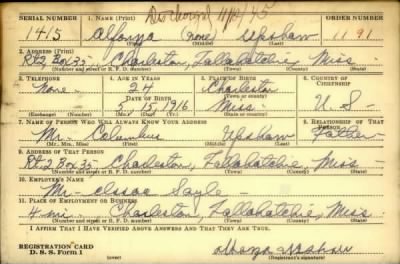 Discharged 11/10/45
SERIAL NUMBER 1. NAME (Print) ORDER NUMBER
1415 Alfonza (none) Upshaw 1191
(First) (Middle) (Last)
2. ADDRESS (Print)
Rt 2 Box 35 Charleston, Tallahatchie, Miss
(Number and street or R. F. D. number) (Town) (County) (State)
3. TELEPHONE 4. AGE IN YEARS 5. PLACE OF BIRTH 6. COUNTRY OF CITIZENSHIP
None 24 Charleston
DATE OF BIRTH (Town or county)
5 15 1916 Miss. U. S-
(Exchange) (Number) (Mo.) (Day) (Yr.) (State or country)
7. NAME OF PERSON WHO WILL ALWAYS KNOW YOUR ADDRESS 8. RELATIONSHIP OF THAT PERSON
Mr. Columbus Upshaw Father
(Mr., Mrs., Miss) (First) (Middle) (Last)
9. ADDRESS OF THAT PERSON
Rt 2 Box 35- Charleston, Tallahatchie, Miss -
(Number and street or R. F. D. number) (Town) (County) (State)
10. EMPLOYER'S NAME
Mr- Issac Sayle -
11. PLACE OF EMPLOYMENT OR BUSINESS
4 mi. Charleston, Tallahatchie, Miss
(Number and street or R. F. D. number) (Town) (County) (State)
I AFFIRM THAT I HAVE VERIFIED ABOVE ANSWERS AND THAT THEY ARE TRUE.
REGISTRATION CARD
D. S. S. Form 1 (over) Alfonza Upshaw
(Registrant's signature)